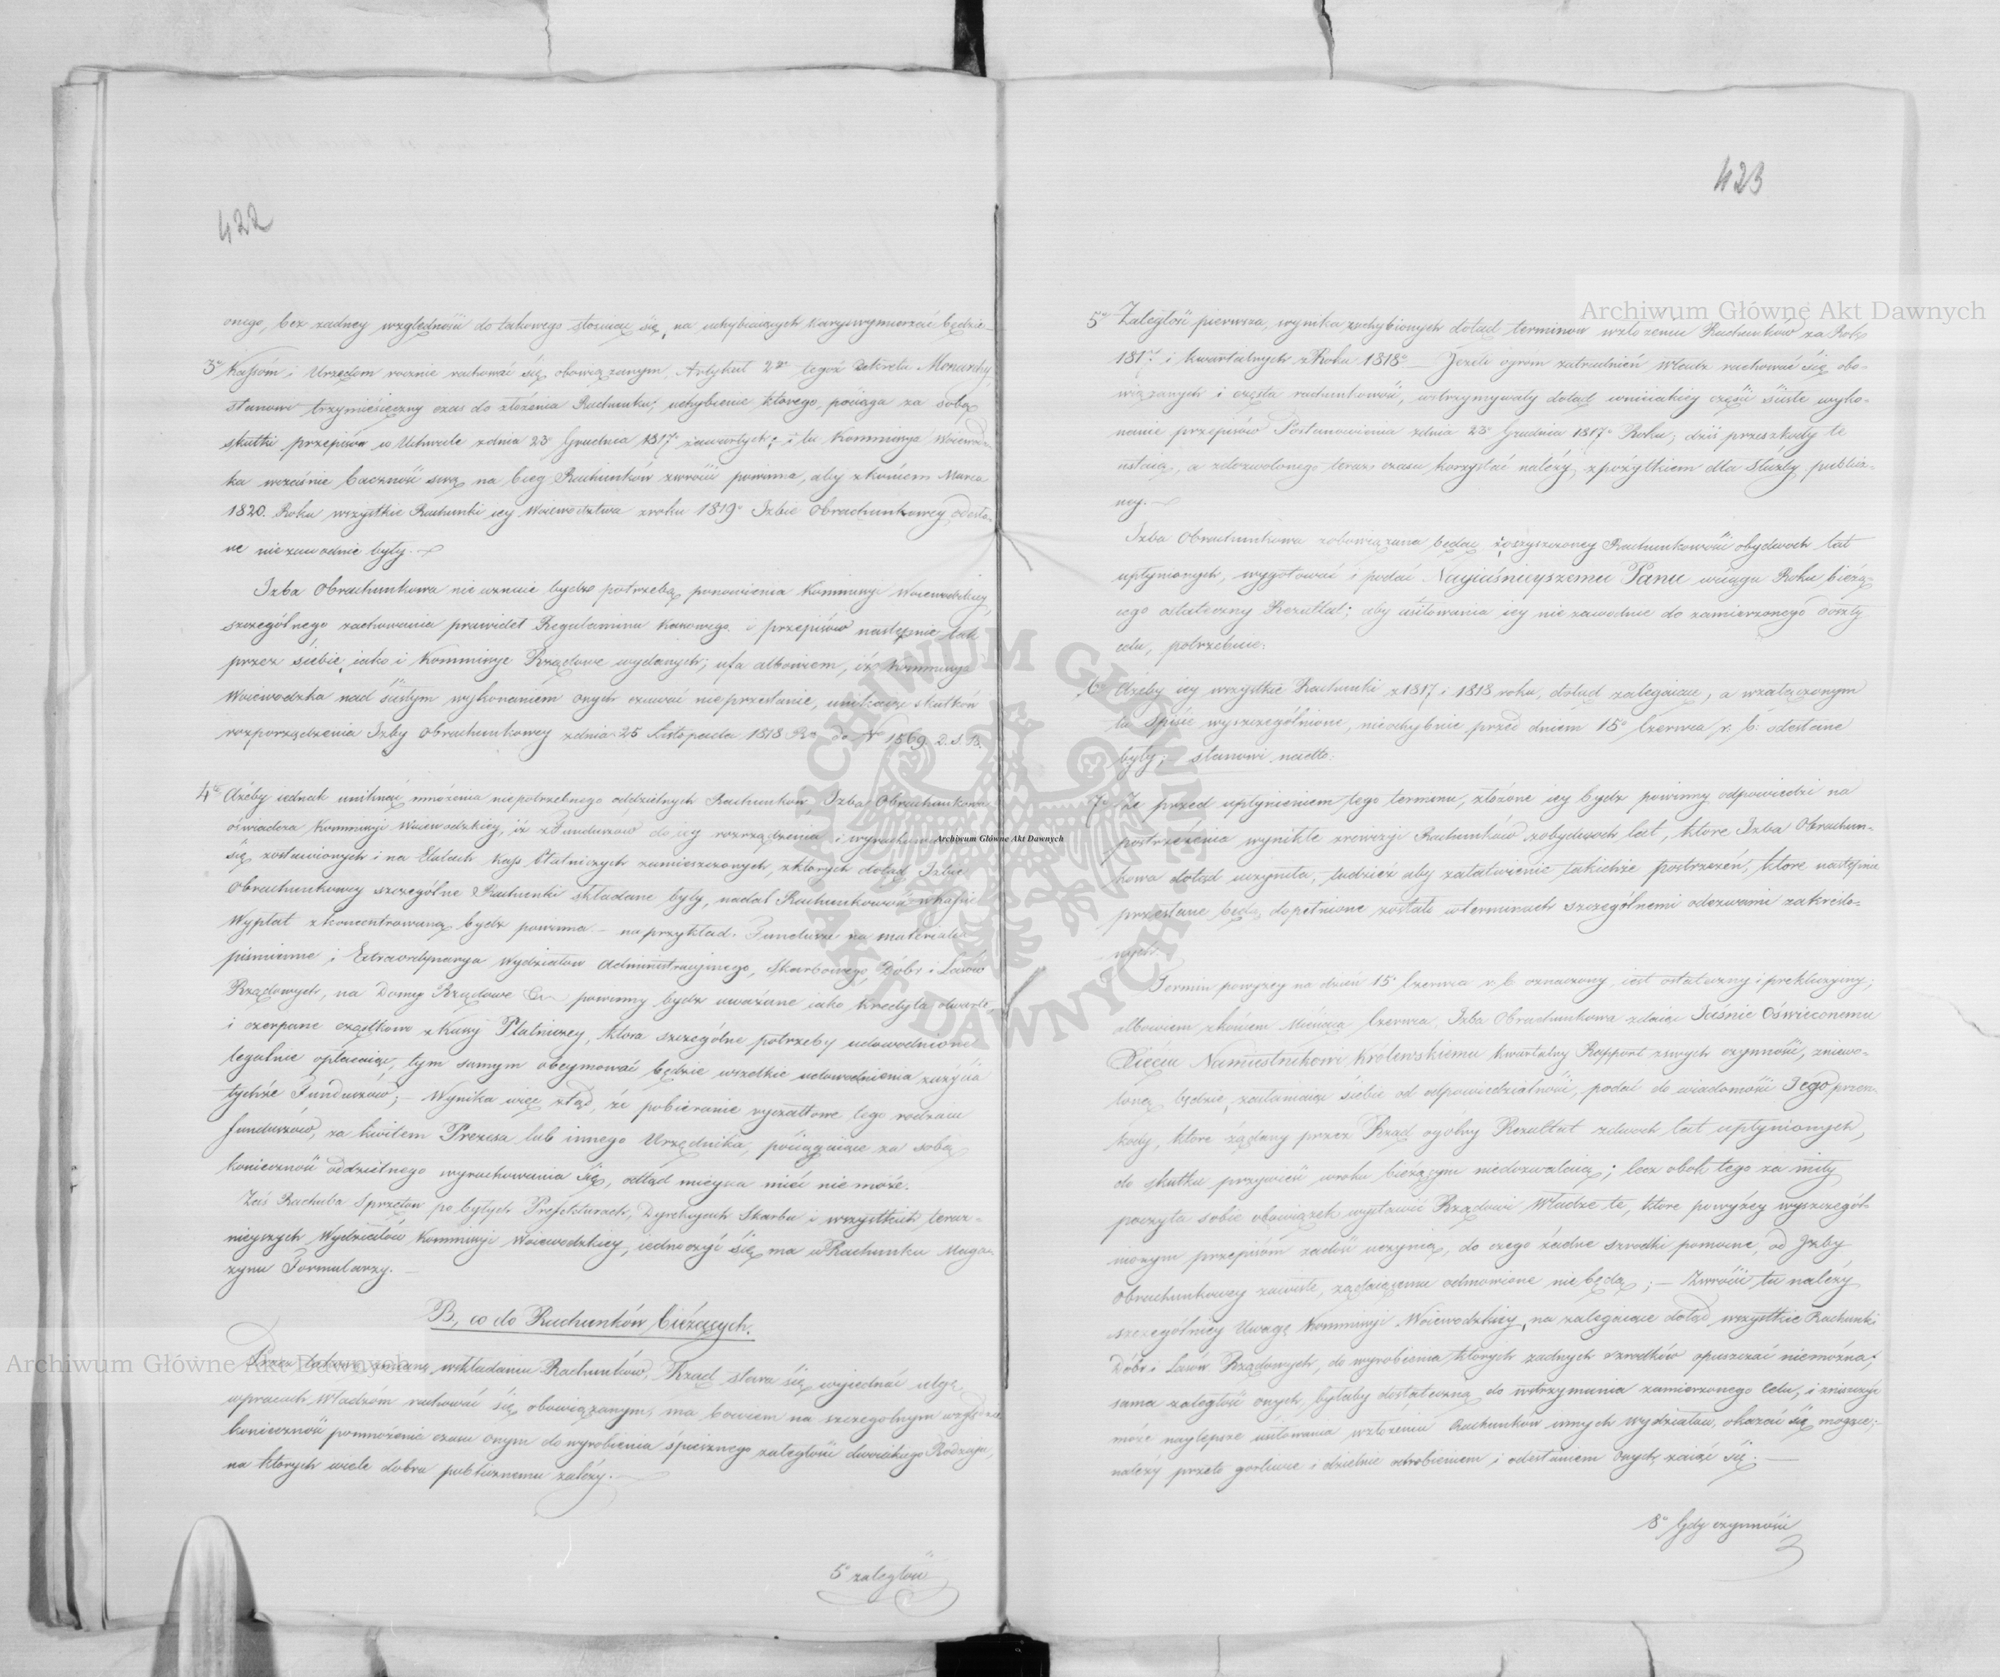 422
onego, bez żadney względności do takowego stosuiąc się, na uchybiaiących karę wymierzać będzie
3º Kassom i Urzędom rocznie rachować się obowiązanym, Artykuł 2gi tegoż Dekretu Monarchy
stanowi trzymiesięczny czas do złożenia Rachunku, uchybienie którego, pociąga za sobą
skutki przepisów w Uchwale z dnia 23 Grudnia 1817 zawartych; i tu Kommissya Woiewódz-
ka wcześnie baczność swą na bieg Rachunków zwrócić powinna, aby z końcem Marca
1820. Roku wszystkie Rachunki iey Woiewództwa z roku 1819º Izbie Obrachunkowey odesła-
ne niezawodnie były.
Izba Obrachunkowa nie uznaie bydź potrzebą ponowienia Kommissyi Woiewódzkiey
szczególnego zachowania prawideł Regulaminu Kassowego i przepisów następnie tak
przez siebie, iako i Kommissye Rządowe wydanych; ufa albowiem, iż Kommissya
Woiewódzka nad ścisłym wykonaniem onych czuwać nieprzestanie, unikaiąc skutków
rozporządzenia Izby Obrachunkowey z dnia 25 Listopada 1818 Ro. do No 1569.
4º Ażeby iednak uniknąć mnożenia niepotrzebnego oddzielnych Rachunków, Izba Obrachunkowa
oświadcza Kommissyi Woiewódzkiey, iż z Funduszów do iey rozrządzenia i wyrachowania
się zostawionych i na Etatach Kass Płatniczych zamieszczonych, z których dotąd Izbie
Obrachunkowey szczególne Rachunki składane były, nadal Rachunkowość w Kassie
Wypłat zkoncentrowaną bydź powinna – na przykład. Fundusze na materiały
piśmienne i Extraordynarya Wydziałów Administracyjnego, Skarbowego, Dóbr i Lasów
Rządowych, na Domy Rządowe powinny bydź uważane iako kredyta otwarte,
i czerpane cząstkowo z Kassy Płatniczey, która szczególne potrzeby udowodnione
legalnie opłacaiąc, tym samym obeymować będzie wszelkie udowodnienia zużycia
tychże Funduszów; – Wynika więc ztąd, że pobieranie ryczałtowe tego rodzaiu
funduszów, za kwitem Prezesa lub innego Urzędnika, pociągaiące za sobą
konieczność oddzielnego wyrachowania się, odtąd mieysca mieć niemoże.
Zaś Rachuba Sprzętów po byłych Prefekturach, Dyrekcyach Skarbu i wszystkich teraz-
nieyszych Wydziałów Kommissyi Woiewódzkiey, iednoczyć się ma w Rachunku Maga-
zynu Formularzy.
B, co do Rachunków bieżących.
Przez takową zmianę w składaniu Rachunków, Rząd stara się wyiednać ulgę
w pracach Władzom rachować się obowiązanym, ma bowiem na szczególnym względzie
konieczność pomnożenia czasu onym do wyrobienia śpiesznego zaległości dwoiakiego Rodzaju,
na których wiele dobra publicznemu zależy.
5º zaległość
423
5º Zaległość pierwsza, wynika z uchybionych dotąd terminów w złożeniu Rachunków za Rok
1817 i kwartalnych z Roku 1818º – Jeżeli ogrom zatrudnień Władz rachować się obo-
wiązanych i częsta rachunkowość, wstrzymywały dotąd w niejakiey części ścisłe wyko-
nanie przepisów Postanowienia z dnia 23º Grudnia 1817º Roku, dziś przeszkody te
ustaią, a zdozwolonego teraz czasu korzystać należy, z pożytkiem dla Służby publicz-
ney. –
Izba Obrachunkowa zobowiązana będąc z oczyszczoney Rachunkowości obydwoch lat
upłynionych, wygotować i podać Nayiaśnieyszemu Panu w ciągu Roku bieżą-
cego ostateczny Rezultat; aby usiłowania iey niezawodnie do zamierzonego doszły
celu, potrzebuie:
6º Ażeby iey wszystkie Rachunki z 1817 i 1818 roku, dotąd zalegaiące, a w załączonym
tu Spisie wyszczególnione, nieochybnie przed dniem 15º Czerwca r. b. odesłane
były; – stanowi nadto:
7º Że przed upłynieniem tego terminu, złożone iey bydź powinny odpowiedzi na
postrzeżenia wynikłe z rewizyi Rachunków z obydwoch lat, które Izba Obrachun-
kowa dotąd uczyniła, tudzież aby załatwienie takichże postrzeżeń, które następnie
przesłane będą, dopełnione zostało w terminach szczególnemi odezwami zakreślo-
nych.
Termin powyżey na dzień 15 Czerwca r. b. oznaczony, iest ostateczny i prekluzyiny;
albowiem z końcem Miesiąca Czerwca, Izba Obrachunkowa zdaiąc Jaśnie Oświeconemu
Xięciu Namiestnikowi Królewskiemu kwartalny Rapport z swych czynności, zniewo-
loną będzie, zasłaniaiąc siebie od odpowiedzialności, podać do wiadomości Jego przesz-
kody, które żądany przez Rząd ogólny Rezultat z dwoch lat upłynionych,
do skutku przywieść w roku bieżącym niedozwalaią; lecz obok tego za miły
poczyta sobie obowiązek wystawić Rządowi Władze te, które powyżey wyszczegól-
nionym przepisom zadość uczynią, do czego żadne srzodki pomocne, od Izby
Obrachunkowey zawisłe, żądaiącemu odmówione niebędą; – Zwrócić tu należy
szczególniey Uwagę Kommissyi Woiewódzkiey, na zalegaiące dotąd wszystkie Rachunki
Dóbr i Lasów Rządowych, do wyrobienia których żadnych srzodków opuszczać niemożna;
sama zaległość onych, byłaby dostateczną do wstrzymania zamierzonego celu, i zniszczyć
może naylepsze usiłowania w złożeniu Rachunków innych wydziałów, okazać się mogące;
należy przeto gorliwie i dzielnie odrobieniem i odesłaniem onych zaiąć się. –
8º Gdy czynność
Archiwum Główne Akt Dawnych
Archiwum Główne Akt Dawnych
Archiwum Główne Akt Dawnych
ARCHIWUM GŁÓWNE AKT DAWNYCH